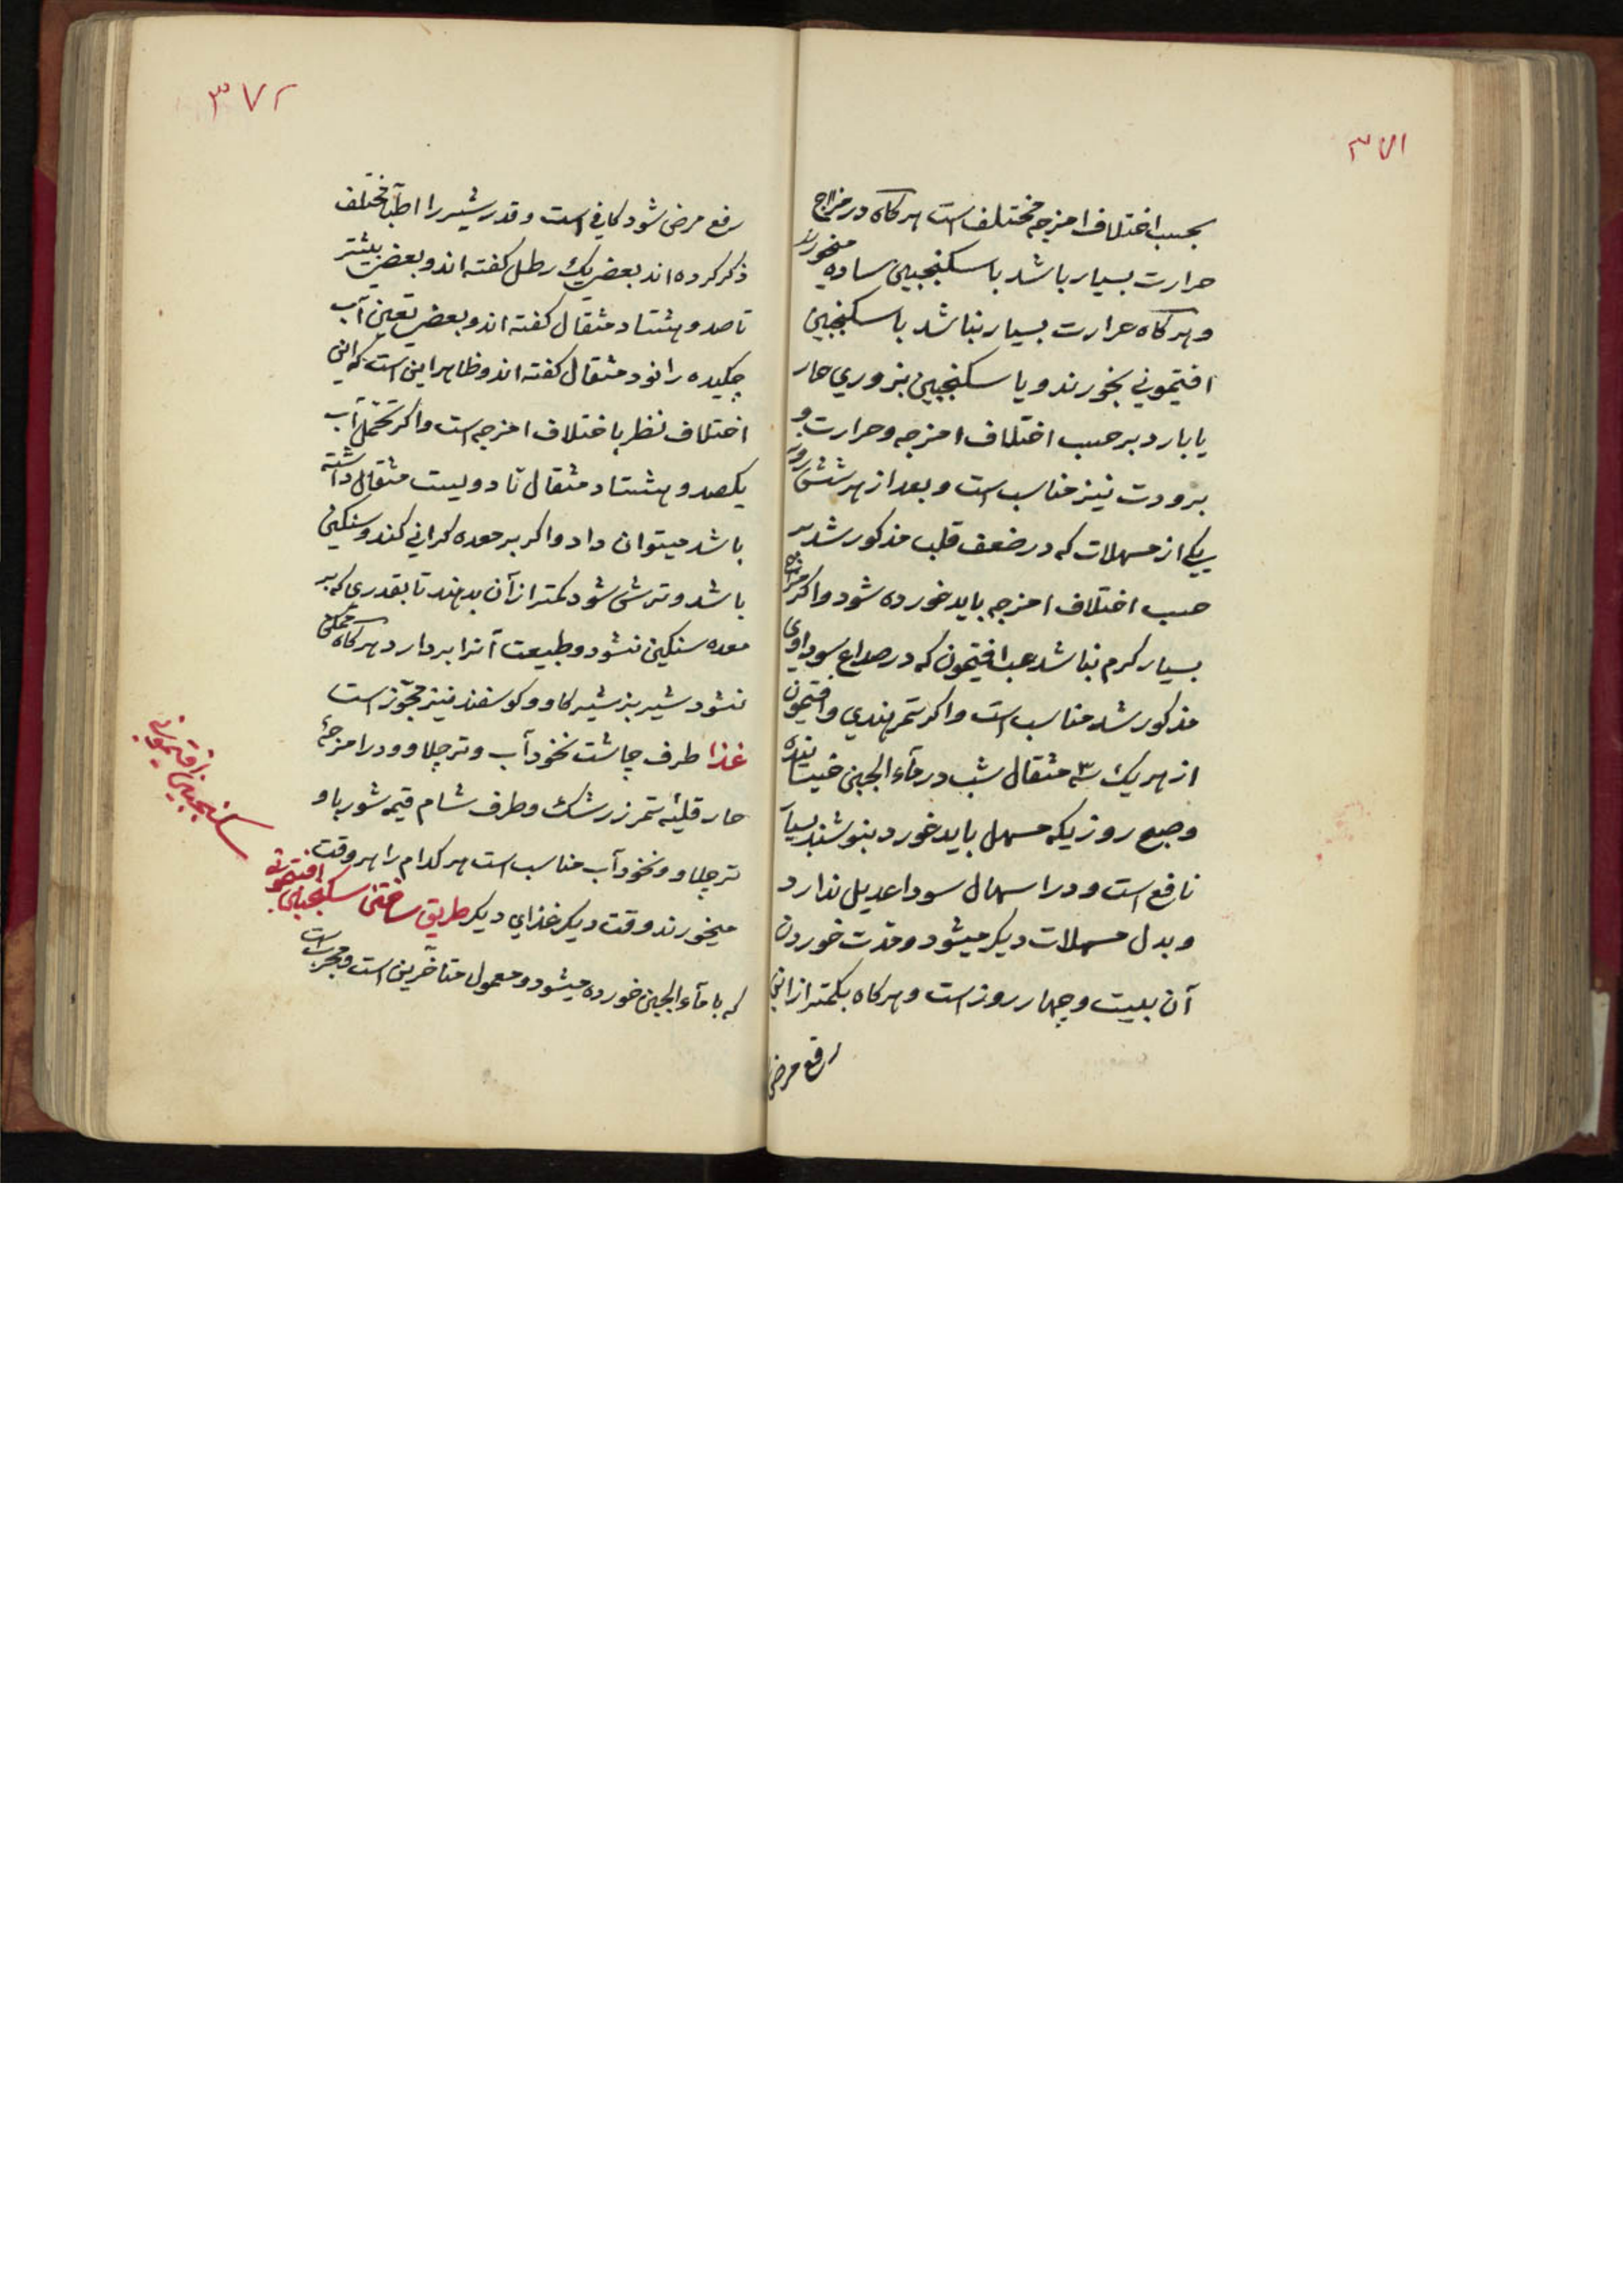 ۳۷۱
بحسب اختلاف امزجه مختلف است هرکاه در مزاج
حرارت بسیار باشد با سکنجبین ساده میخورند
و هرکاه حرارت بسیار نباشد با سکنجبین
افتیمونی بخورند و یا سکنجبین بزوري حار
یا بارد برحسب اختلاف امزجه و حرارت و
برودت نیز مناسب است و بعد از هر شش روز
یکی از مسهلات که در ضعف قلب مذکور شد بر
حسب اختلاف امزجه باید خورده شود و اکر مزاج
بسیار کرم نباشد حب افتیمون که در صداع سوداوی
مذکور شد مناسب است و اکر تمر هندي و افتیمون
از هر یک ۳ مثقال شب در مآء الجبن خیسانده
و صبح روزیکه مسهل باید خورد بنوشند بسیار
نافع است و در اسهال سودا عدیل ندارد
و بدل مسهلات دیکر میشود و مدت خوردن
آن بیست و چهار روز است و هرکاه بکمتر از این
رفع مرض
۳۷۲
رفع مرض شود کافی است و قدر شیر را اطبآ مختلف
ذکر کرده اند بعضی یک رطل کفته اند و بعضی بیشتر
تا صد و هشتاد مثقال کفته اند و بعضی تعین آب
چکیده را نود مثقال کفته اند و ظاهر این است که این
اختلاف نظر باختلاف امزجه است و اکر تحمل آب
یکصد و هشتاد مثقال تا دویست مثقال داشته
باشد میتوان داد و اکر بر معده کرانی کند و سنکین
باشد و ترش شود کمتر از آن بدهند تا بقدري که بر
معده سنکین نشود و طبیعت آنرا بردارد هرکاه ممکن
نشود شیر بز شیر کاو و کوسفند نیز مجوّز است
غذا طرف چاشت نخود آب و تر چلاو و در امزجهٔ
حار قلیهٔ تمر زرشک و طرف شام قیمه شوربا و
تر چلاو و نخود آب مناسب است هرکدام را هر وقت
میخورند وقت دیکر غذاي دیکر طریق ساختن سکنجبین افتیمونی
که با مآء الجبن خورده میشود و معمول متأخرین است و مجرب است
سکنجبین افتیمونی